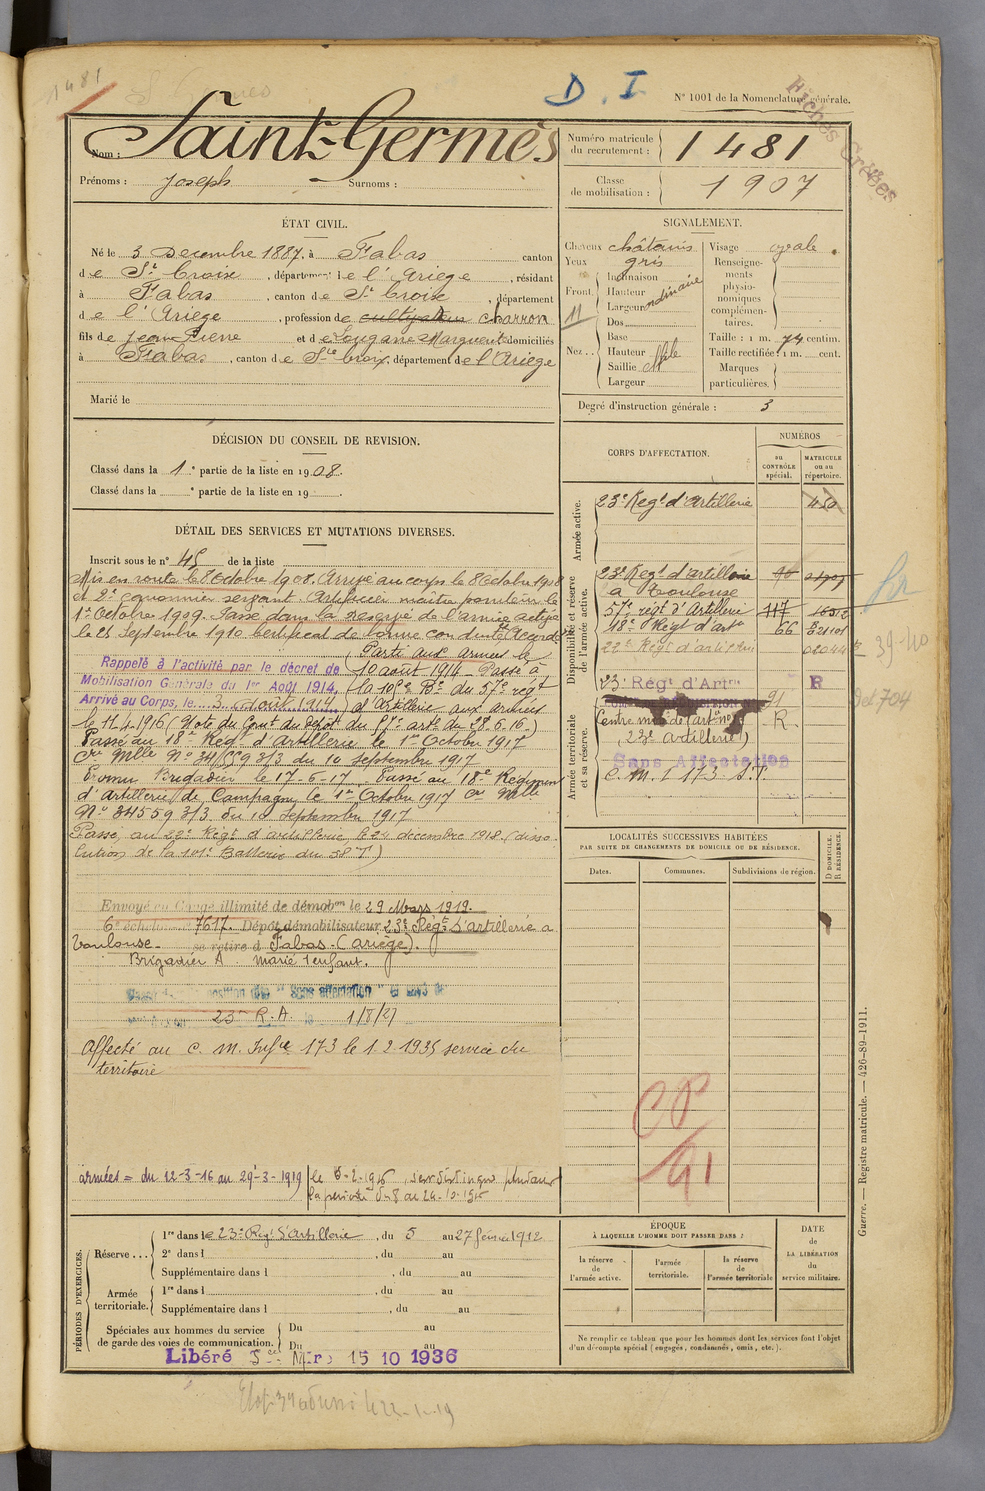 1481
D. I
N° 1001 de la Nomenclature générale.
Fiches Créées
Nom : Saint-Germès
Prénoms : Joseph Surnoms :
Numéro matricule du recrutement : 1481
Classe de mobilisation : 1907
ÉTAT CIVIL.
Né le 3 Decembre 1887, à Fabas canton
de Ste Croix, département de l'Ariège, résidant
à Fabas, canton de Ste Croix, département
de l'Ariège, profession de cultivateur charron
fils de Jean Pierre et de Marguerite domiciliés
à Fabas, canton de Ste Croix, département de l'Ariège
Marié le
SIGNALEMENT.
Cheveux châtains
Yeux gris
Front
Inclinaison
Hauteur ordinaire
Largeur
Nez
Dos
Base
Hauteur
Saillie
Largeur
Visage ovale.
Renseignements physionomiques complémentaires.
Taille : 1 m. 74 centim.
Taille rectifiée : 1 m. cent.
Marques particulières.
Degré d'instruction générale : 3
DÉCISION DU CONSEIL DE REVISION.
Classé dans la 1e partie de la liste en 1908.
Classé dans la e partie de la liste en 19 .
CORPS D'AFFECTATION.
NUMÉROS
au CONTRÔLE spécial.
MATRICULE ou au répertoire.
Armée active.
23e Regt d'Artillerie 450
Disponibilité et réserve de l'armée active.
23e Regt d'artillerie
à Toulouse
57e régt d'Artillerie 117
18e Régt d'arte 66
22e Régt d'artillerie
39-40
Armée territoriale et sa réserve.
23e Régt d'Artrie R
91
R.
(23e artillerie)
Sans Affectation
C. M. I 173. S.T.
DÉTAIL DES SERVICES ET MUTATIONS DIVERSES.
Inscrit sous le n° 45 de la liste
Mis en route le 8 Octobre 1908. Arrivé au corps le 8 Octobre 1908
et 2e canonnier servant. Artificier maître pointeur le
1er Octobre 1909. Passé dans la Réserve de l'armée active
le 25 Septembre 1910 Certificat de bonne conduite Accordé
Rappelé à l'activité par le décret de
Mobilisation Générale du 1er Août 1914,
Arrivé au Corps, le 3 Août 1914.
Parti aux armées le
10 août 1914 - Passé à
la 101e Bie du 57e régt
d'Artillerie aux armées
le 11-4-1916 (Note du Comt du Dépôt du 57e arte du 28.6.16)
Passé au 18e Rég. d'Artillerie le 1er Octobre 1917
Mlle N° 34559 3/3 du 10 septembre 1917
Nommé Brigadier le 17-6-17. Passé au 18e Régiment
d'Artillerie de Campagne le 1er Octobre 1917
N° 34559 3/3 du 10 Septembre 1917
Passé au 22e Régt d'artillerie le 24 decembre 1918 (disso-
lution de la 101e Batterie du 58e)
Envoyé en Congé illimité de démobon le 29 Mars 1919.
6e échelon n° 7617. Dépôt démobilisateur 23e Régt d'artillerie à
Toulouse. se retire à Fabas (Ariège).
Brigadier A marié 1 enfant.
"Sans affectation"
23e R.A. le 1/8/27
Affecté au C. M. Infie 173 le 1.2.1935 service du
territoire
armées = du 12-3-16 au 29-3-1919
LOCALITÉS SUCCESSIVES HABITÉES
PAR SUITE DE CHANGEMENTS DE DOMICILE OU DE RÉSIDENCE.
Dates. Communes. Subdivisions de région.
D DOMICILE. R RÉSIDENCE.
CP
91
Guerre. — Registre matricule. — 426-89-1911.
PÉRIODES D'EXERCICES.
Réserve
1re dans le 23e Régt d'Artillerie, du 5 au 27 février 1912
2e dans l , du au
Supplémentaire dans l , du au
Armée territoriale.
1re dans l , du au
Supplémentaire dans l , du au
Spéciales aux hommes du service de garde des voies de communication.
Du au
Du au
Libéré Sce Mre 15 10 1936
ÉPOQUE
À LAQUELLE L'HOMME DOIT PASSER DANS :
la réserve de l'armée active.
l'armée territoriale.
la réserve de l'armée territoriale
DATE DE LA LIBÉRATION du service militaire.
Ne remplir ce tableau que pour les hommes dont les services font l'objet
d'un décompte spécial (engagés, condamnés, omis, etc.).